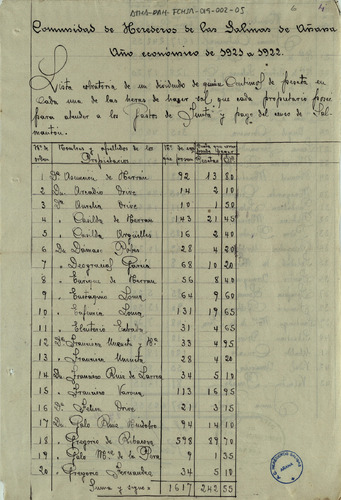 ATHA-DAH-FCHSA-019-002-05
6
4
Comunidad de Herederos de las Salinas de Añana
Año económico de 1921 a 1922.
Lista cobratoria de un dividendo de quince Centimos de peseta en
cada una de las heras de hacer sal que cada propietario posee
para atender a los Gastos de Junta y pago del censo de Sal-
mantón.
Nº de orden Nombres y apellidos de los Propietarios Nº de eras que poseen Pesetas Cts
1 Dª Asuncion de Herrán 92 13 80
2 Dn Arcadio Orive 14 2 10
3 Dª Aurelia Orive 10 1 50
4 " Casilda de Herran 143 21 45
5 " Casilda Arguilles 16 2 40
6 Dn Damaso Pobes 28 4 20
7 " Deogracias Garcia 68 10 20
8 " Enrique de Herran 56 8 40
9 " Eustaquio Loma 64 9 60
10 " Eufemia Loma 131 19 65
11 " Eleuterio 31 4 65
12 Dª Francisca Urrueta y Hª 33 4 95
13 " Francisca Urrueta 28 4 20
14 Dn Francisco Ruiz de Larrea 34 5 10
15 " Francisco Varona 113 16 95
16 Dª Felisa Orive 21 3 15
17 Dn Galo Ruiz 94 14 10
18 " Gregorio de Ribacoba 598 89 70
19 " Galo Mª de la 9 1 35
20 " Gregorio Fernandez 34 5 10
Suma y sigue 1617 242 55
AÑANA